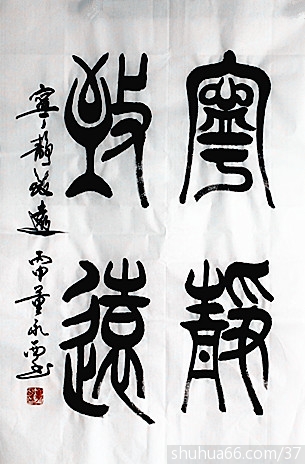 寧靜
致遠
寧静致遠 丙申
shuhua66.com/37